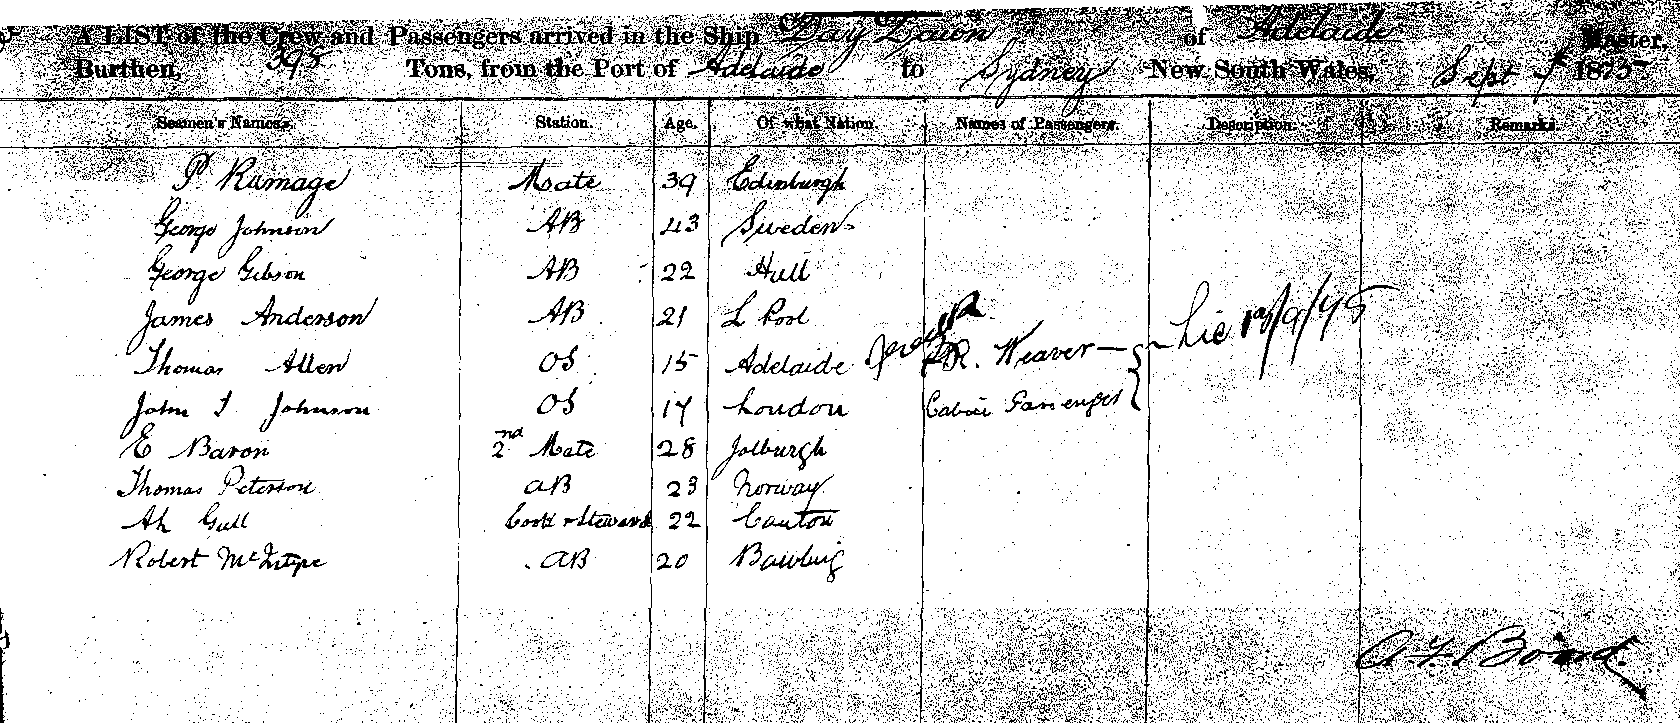 A LIST of the Crew and Passengers arrived in the Ship Day Dawn of Adelaide Master,
Burthen, 395 Tons, from the Port of Adelaide to Sydney New South Wales, Sept 1875
Seamen's Names. Station. Age. Of what Nation. Names of Passengers. Description. Remarks.
P. Ramage Mate 39 Edinburgh
George Johnson AB 43 Sweden
George Gibson AB 22 Hull
James Anderson AB 21 L Pool
Thomas Allen OS 15 Adelaide R. Weaver
John J Johnson OS 17 London Cabin Passenger
E Baron 2nd Mate 28
Thomas Peterson AB 23 Norway
Ah Gull Cook & Steward 22 Canton
Robert McIntyre AB 20 Bowling